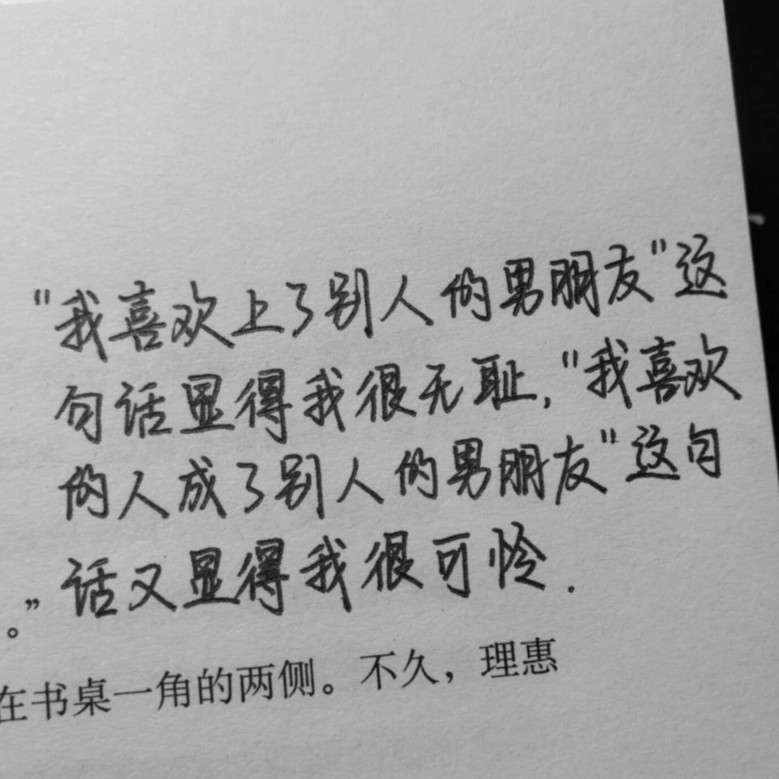 "我喜欢上了别人的男朋友"这
句话显得我很无耻,"我喜欢
的人成了别人的男朋友"这句
话又显得我很可怜.
。”
在书桌一角的两侧。不久，理惠